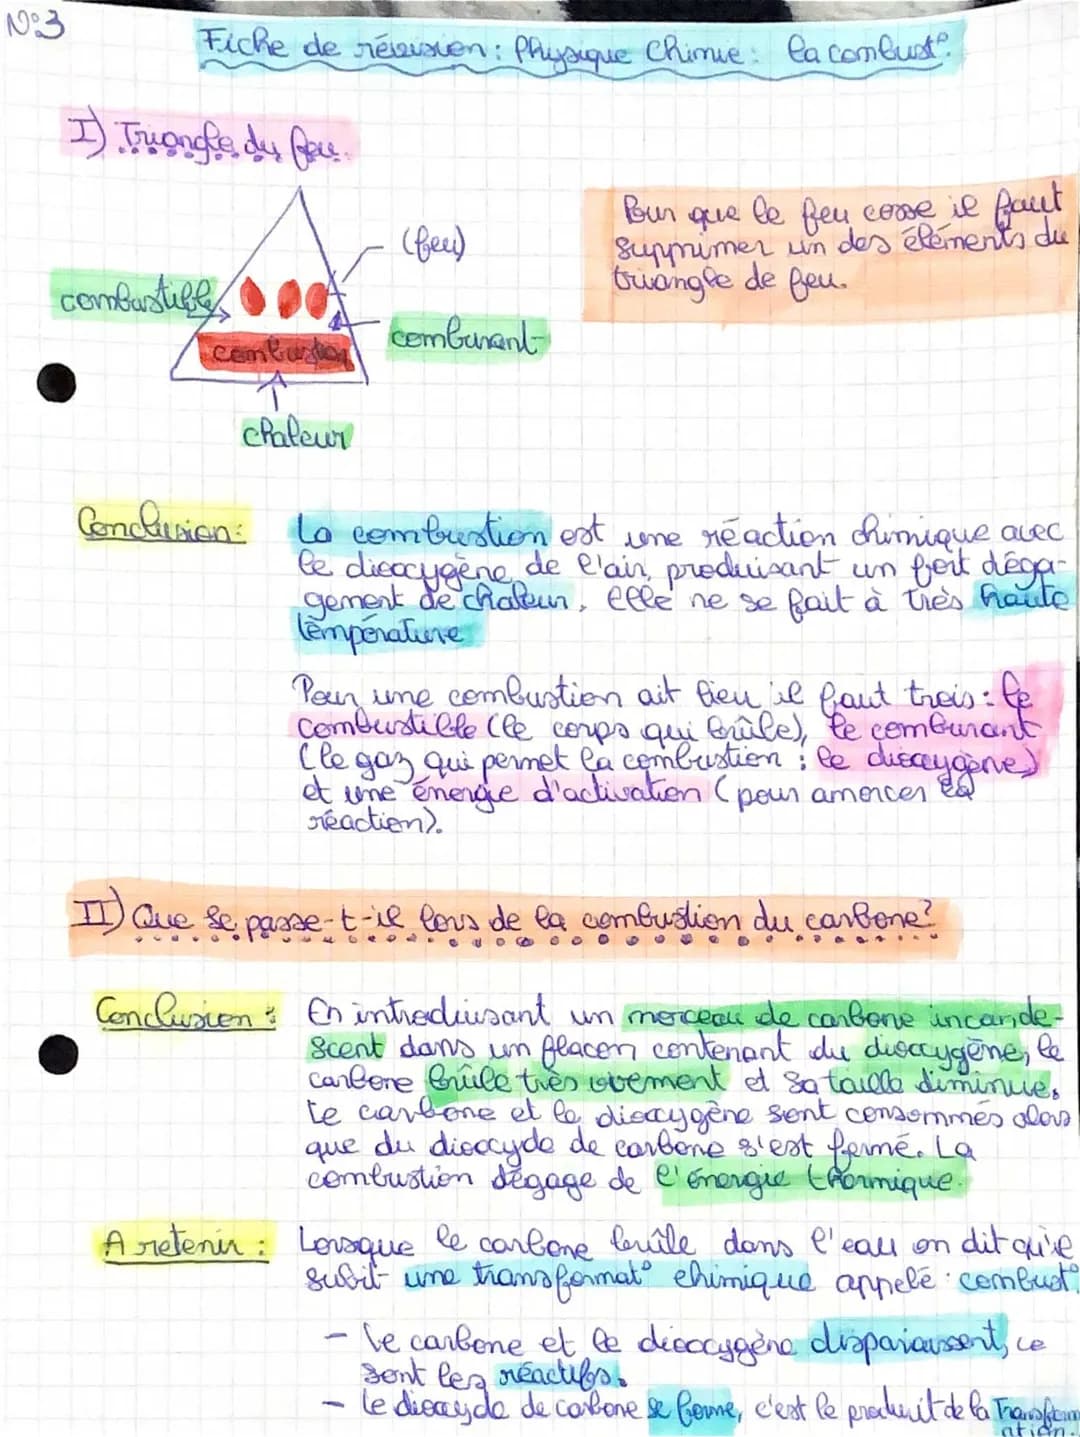 N°3
Fiche de révision : Physique Chimie : la combust°.
I) Triangle du feu.
(feu)
combustible
combustion
comburant
chaleur
Pour que le feu cesse il faut
supprimer un des éléments du
triangle de feu.
Conclusion : La combustion est une réaction chimique avec
le dioxygène de l'air, produisant un fort déga-
gement de chaleur, elle ne se fait à très haute
température
Pour une combustion ait lieu il faut trois : le
combustible (le corps qui brûle), le comburant
(le gaz qui permet la combustion : le dioxygène)
et une énergie d'activation (pour amorcer la
réaction).
II) Que se passe-t-il lors de la combustion du carbone ?
Conclusion : En introduisant un morceau de carbone incande-
scent dans un flacon contenant du dioxygène, le
carbone brûle très vivement et sa taille diminue.
Le carbone et le dioxygène sont consommés alors
que du dioxyde de carbone s'est formé. La
combustion dégage de l'énergie thermique.
A retenir : Lorsque le carbone brûle dans l'eau on dit qu'il
subit une transformat° chimique appelé : combust°.
- Le carbone et le dioxygène disparaissent, ce
sont les réactifs.
- Le dioxyde de carbone se forme, c'est le produit de la Transform
ation.